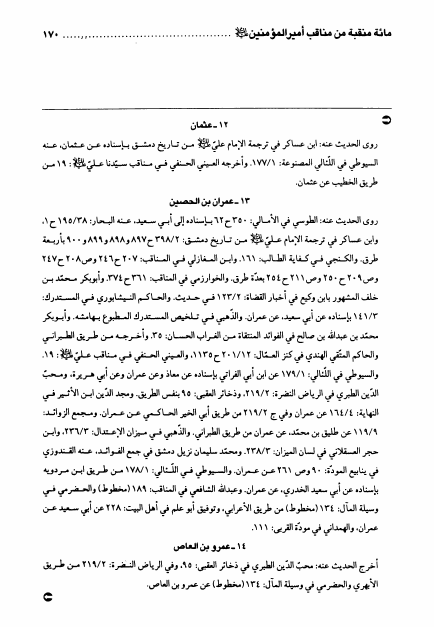 مائة منقبة من مناقب أمير المؤمنين ﷺ ........................................... ١٧٠
١٢ ـ عثمان
روى الحديث عنه: ابن عساكر في ترجمة الإمام عليّ ﷺ من تاريخ دمشق بإسناده عن عثمان، عنه
السيوطي في اللئالي المصنوعة: ١٧٧/١. وأخرجه العيني الحنفي في مناقب سيّدنا عليّ ﷺ: ١٩ من
طريق الخطيب عن عثمان.
١٣ ـ عمران بن الحصين
روى الحديث عنه: الطوسي في الأمالي: ٣٥٠ ح ٦٢ بإسناده إلى أبي سعيد، عنه البحار: ١٩٥/٣٨ ح ١،
وابن عساكر في ترجمة الإمام عليّ ﷺ من تاريخ دمشق: ٣٩٨/٢ ح ٨٩٧ و ٨٩٨ و ٨٩٩ و ٩٠٠ بأربعة
طرق. والكنجي في كفاية الطالب: ١٦١. وابن المغازلي في المناقب: ٢٠٧ ح ٢٤٦ وص ٢٠٨ ح ٢٤٧
وص ٢٠٩ ح ٢٥٠ وص ٢١١ ح ٢٥٤ بعدّة طرق. والخوارزمي في المناقب: ٣٦١ ح ٣٧٤. وأبوبكر محمّد بن
خلف المشهور بابن وكيع في أخبار القضاة: ١٢٣/٢ في حديث. والحاكم النيشابوري في المستدرك:
١٤١/٣ بإسناده عن أبي سعيد، عن عمران. والذّهبي في تلخيص المستدرك المطبوع بهامشه. وأبوبكر
محمّد بن عبدالله بن صالح في الفوائد المنتقاة من الغراب الحسان: ٣٥. وأخرجه من طريق الطبراني
والحاكم المتّقي الهندي في كنز العمّال: ٢٠١/١٢ ح ١١٣٥، والعيني الحنفي في مناقب عليّ ﷺ: ١٩.
والسيوطي في اللّئالي: ١٧٩/١ عن ابن أبي الفراتي بإسناده عن معاذ وعن عمران وعن أبي هريرة، ومحبّ
الدّين الطبري في الرياض النضرة: ٢١٩/٢، وذخائر العقبى: ٩٥ بنفس الطريق. ومجد الدّين ابن الأثير في
النهاية: ١٦٤/٤ عن عمران وفي ج ٢١٩/٢ من طريق أبي الخير الحاكمي عن عمران. ومجمع الزوائد:
١١٩/٩ عن طليق بن محمّد، عن عمران من طريق الطبراني. والذّهبي في ميزان الإعتدال: ٢٣٦/٣. وابن
حجر العسقلاني في لسان الميزان: ٢٣٨/٣. ومحمّد سليمان نزيل دمشق في جمع الفوائد، عنه القندوزي
في ينابيع المودّة: ٩٠ وص ٢٦١ عن عمران. والسيوطي في اللّئالي: ١٧٨/١ من طريق ابن مردويه
بإسناده عن أبي سعيد الخدري، عن عمران. وعبدالله الشافعي في المناقب: ١٨٩ (مخطوط) والحضرمي في
وسيلة المآل: ١٣٤ (مخطوط) من طريق الأعرابي، وتوفيق أبو علم في أهل البيت: ٢٢٨ عن أبي سعيد عن
عمران، والهمداني في مودّة القربى: ١١١.
١٤ ـ عمرو بن العاص
أخرج الحديث عنه: محبّ الدّين الطبري في ذخائر العقبى: ٩٥، وفي الرياض النضرة: ٢١٩/٢ من طريق
الأبهري والحضرمي في وسيلة المآل: ١٣٤ (مخطوط) عن عمرو بن العاص.